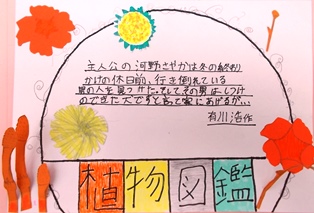 主人公の河野さやかは冬の終わり
かけの休日前、行き倒れている
男の人を見つけた。そしてその男は「しつけ
のできた犬ですと言って家にあげるが…
有川浩作
植物図鑑